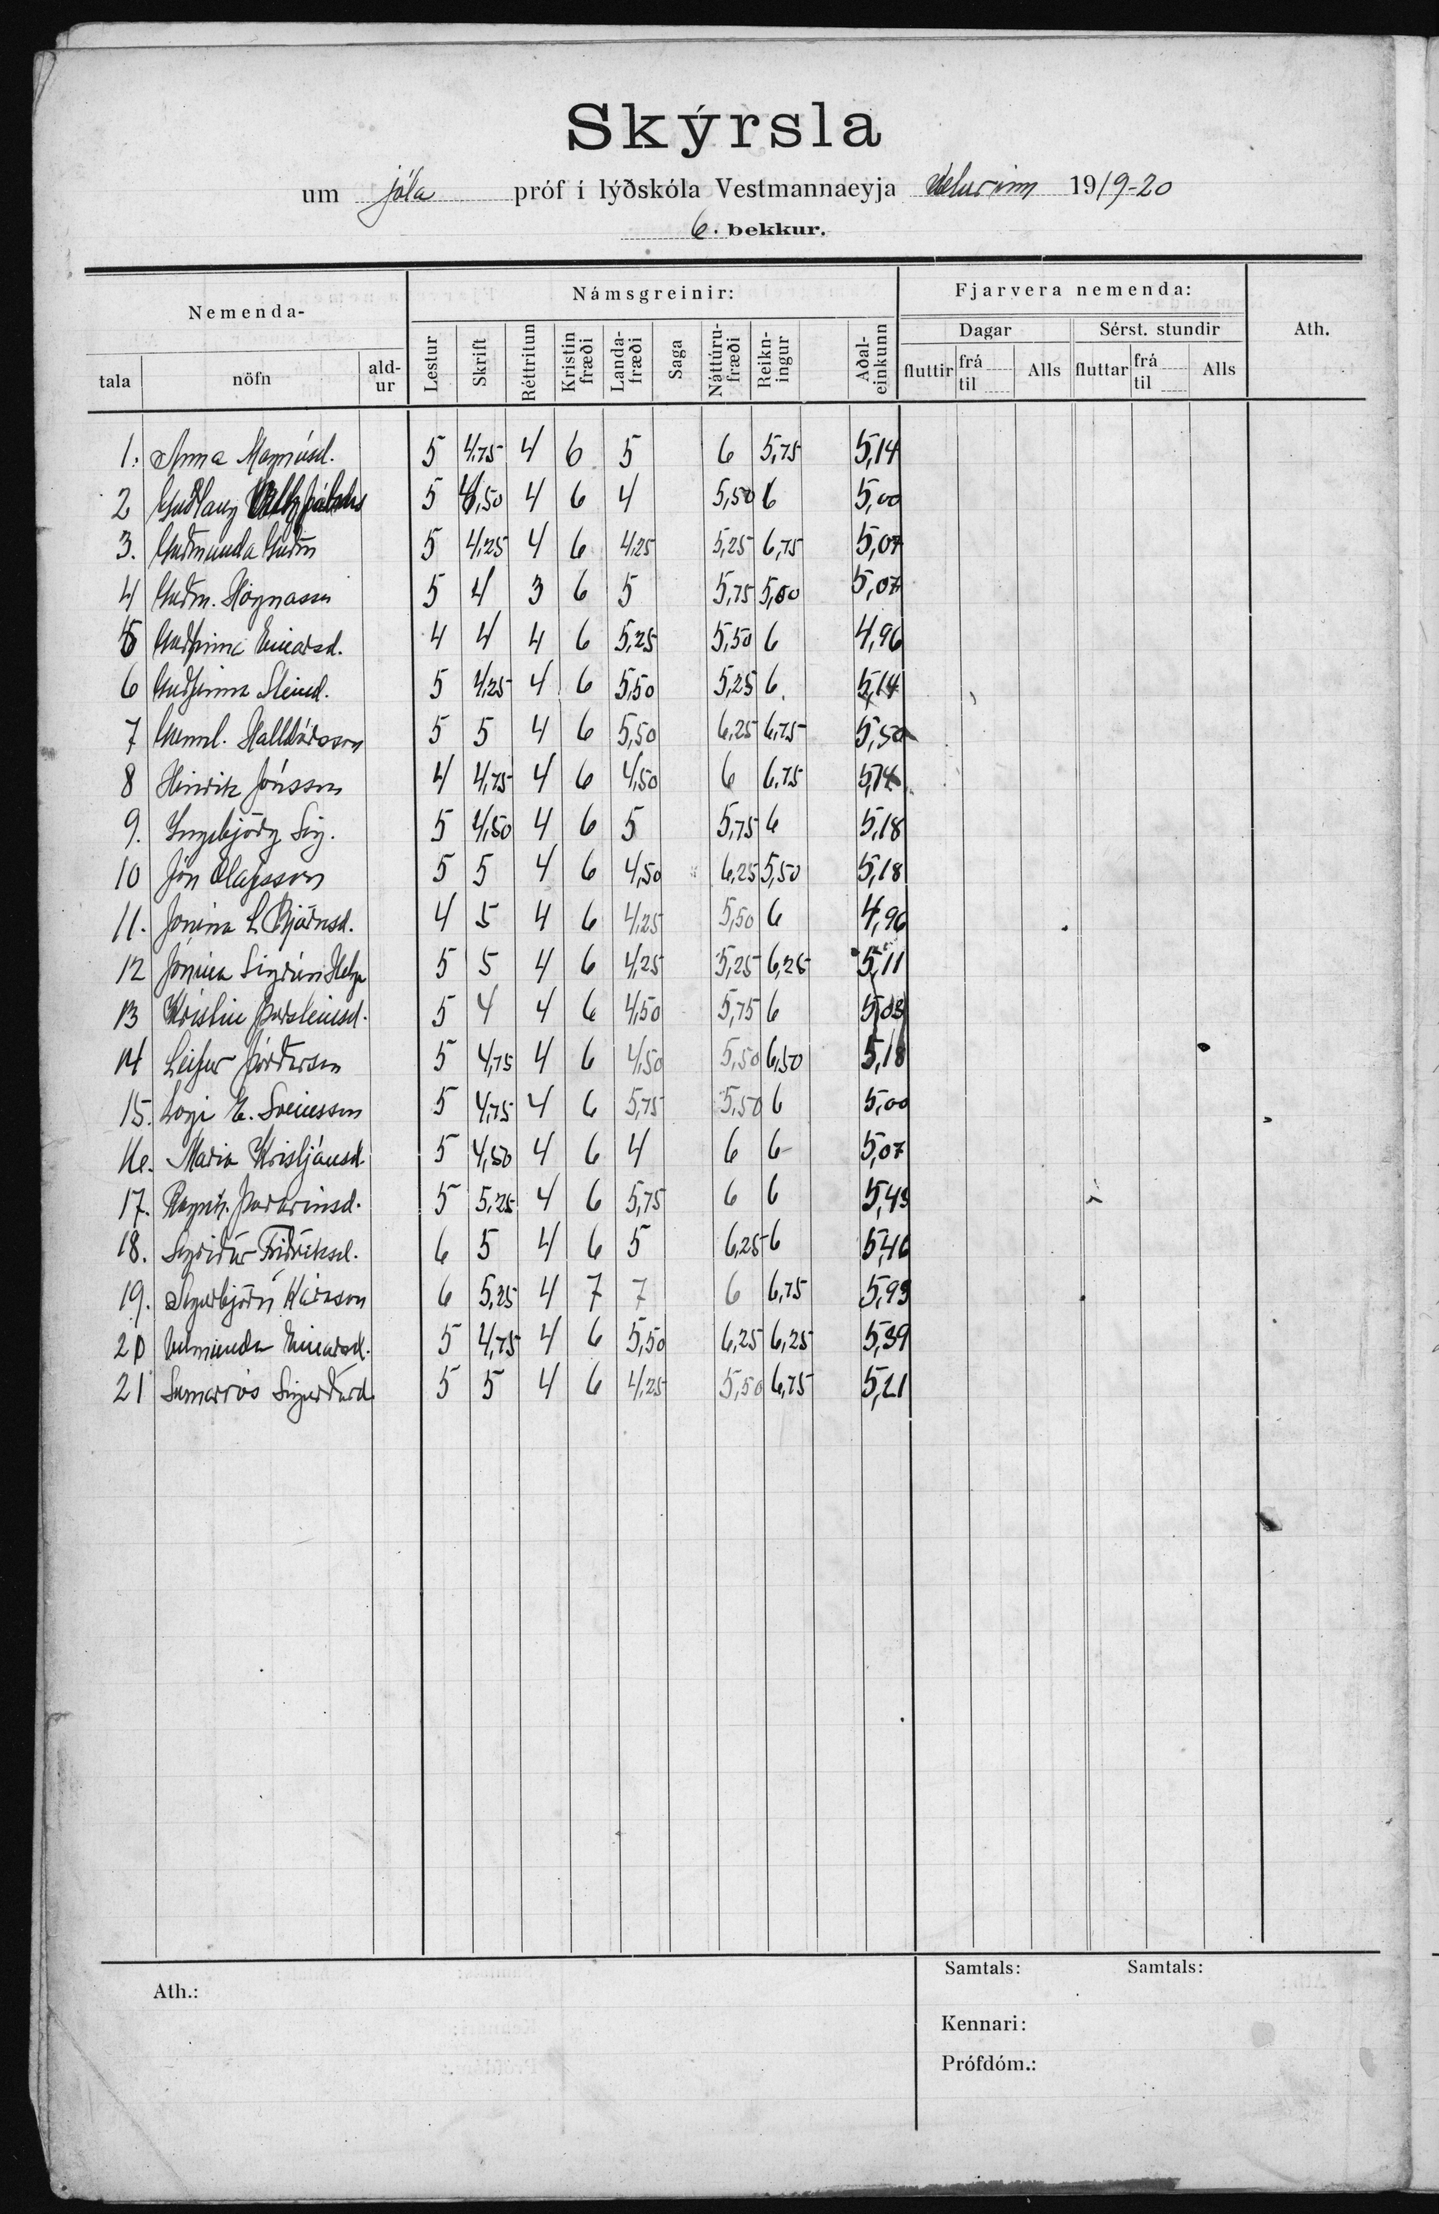 Skýrsla
um jóla próf í lýðskóla Vestmannaeyja veturinn 1919-20
6. bekkur.
Nemenda- Námsgreinir: Fjarvera nemenda: Ath.
Dagar Sérst. stundir
tala nöfn ald-ur Lestur Skrift Réttritun Kristin fræði Landa-fræði Saga Náttúru-fræði Reikn-ingur Aðal-einkunn fluttir frá til Alls fluttar frá til Alls
1. Anna Magnúsd. 5 4,75 4 6 5 6 5,75 5,14
2 Guðlaug 5 4,50 4 6 4 5,50 6 5,00
3. Guðmunda Guðm 5 4,25 4 6 4,25 5,25 6,75 5,07
4 Guðm. Högnason 5 4 3 6 5 5,75 5,00 5,07
5 Guðfinna Einarsd. 4 4 4 6 5,25 5,50 6 4,96
6 Guðfinna Steind. 5 4,25 4 6 5,50 5,25 6 5,14
7 Gunnl. Halldórsson 5 5 4 6 5,50 6,25 6,75 5,50
8 Hinrik Jónsson 4 4,75 4 6 4,50 6 6,75 5,14
9. Ingibjörg Sig. 5 4,50 4 6 5 5,75 6 5,18
10 Jón Olafsson 5 5 4 6 4,50 6,25 5,50 5,18
11. Jónína L Bjarnsd. 4 5 4 6 4,25 5,50 6 4,96
12 Jónína Sigrún Helga 5 5 4 6 4,25 5,25 6,25 5,11
13 Kristín Þorsteinsd. 5 4 4 6 4,50 5,75 6 5,03
14 Leifur Þórðarson 5 4,75 4 6 4,50 5,50 6,50 5,18
15. Logi E. Sveinsson 5 4,75 4 6 5,75 5,50 6 5,00
16. Maria Kristjánsd. 5 4,50 4 6 4 6 6 5,07
17. Ragnh. Þorarinsd. 5 5,25 4 6 5,75 6 6 5,43
18. Sigríður Friðriksd. 6 5 4 6 5 6,25 6 5,46
19. Sigurbjörn Kárason 6 5,25 4 7 7 6 6,75 5,93
20 Vilmunda Einarsd. 5 4,75 4 6 5,50 6,25 6,25 5,39
21 Sumarrós Sigurðard. 5 5 4 6 4,25 5,50 6,75 5,21
Ath.: Samtals: Samtals:
Kennari:
Prófdóm.: